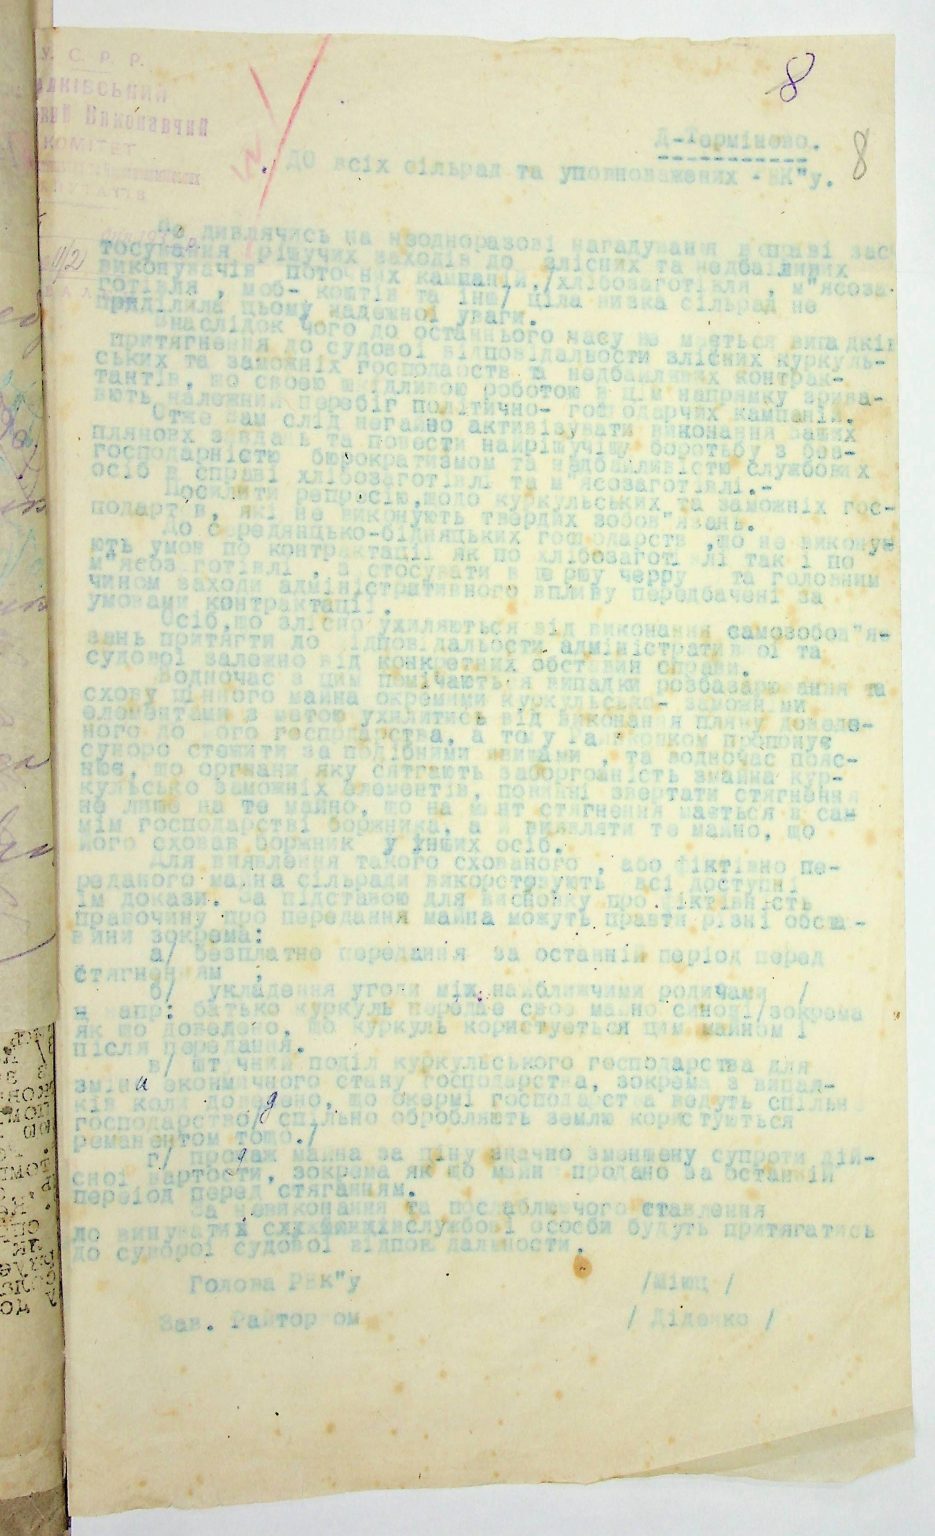 У. С. Р. Р.
КОМІТЕТ
8
8
Д-Терміново.
ДО всіх сільрад та уповноважених РВК"у.
Не дивлячись на неодноразові нагадування в справі зас-
тосування рішучих заходів до злісних та недбайливих
виконувачів поточних кампаній,/хлібозаготівля , м"ясоза-
готівля , моб- коштів та інш/ ціла низка сільрад не
приділила цьому належної уваги.
Внаслідок чого до останнього часу не мається випадків
притягнення до судової відповідальности злісних куркуль-
ських та заможніх господарств та недбайливих контрак-
тантів, що своєю шкідливою роботою в цім напрямку зрива-
ють належний перебіг політично- господарчих кампаній.
Отже вам слід негайно активізувати виконання ваших
плянових завдань та повести найрішучішу боротьбу з без-
господарністю бюрократизмом та недбайливістю службових
осіб в справі хлібозаготівлі та м"ясозаготівлі.-
Посилити репресію,щодо куркульських та заможніх гос-
подартсв, які не виконують твердих зобов"язань.
До середняцько-бідняцьких господарств ,що не виконую-
ють умов по контрактації як по хлібозаготівлі так і по
м"ясозаготівлі , застосувати в першу черру та головним
чином заходи адміністративного впливу передбачені за
умовами контрактації.
Осіб,що злісно ухиляються від виконання самозобов"я-
зань притягти до відповідальости адміністративної та
судової залежно від конкретних обставин справи.
Водночас з цим помічаються випадки розбазарювання та
схову цінного майна окремими куркульсько- заможніми
елементами з метою ухилитись від виконання пляну доведе-
ного до його господарства, а тому Райвиконком пропонує
суворо стежити за подібними явищами , та водночас пояс-
нює, що органи яку сятгають заборгоність змайна кур-
кульсько заможніх елементів, повинні звертати стягнення
не лише на те майно, що на мент стягнення мається в са-
мім господарстві боржника, а й виявляти те майно, що
його сховав боржник у інших осіб.
Для виявлення такого схованого , або фіктивно пе-
реданого майна сільради використовують всі доступні
їм докази. За підставою для висновку про фіктивність
правочину про передання майна можуть правти різні обста-
вини зокрема:
а/ безплатне передання за останній період перед
стягненням ;
б/ укладення угоди між найближчими родичами /
н напр: батько куркуль передає своє майно синові/зокрема
як що доведено, що куркуль користується цим майном і
після передання.
в/ штучний поділ куркульського господарства для
зміни економичного стану господарства, зокрема з випад-
ків коли доведено, що окремі господарства ведуть спільне
господарство/ спільно обробляють землю користуються
реманентом тощо./
г/ продаж майна за ціну значно зменшену супроти дій-
сної вартости, зокрема як що майно продано за останній
період перед стяганням.
За невиконання та послаблюючого ставлення
до винуватих службові ососби будуть притягатись
до суворої судової відповідальности.
Голова РВК"у /Мінц /
Зав. Райторгом / Діденко /